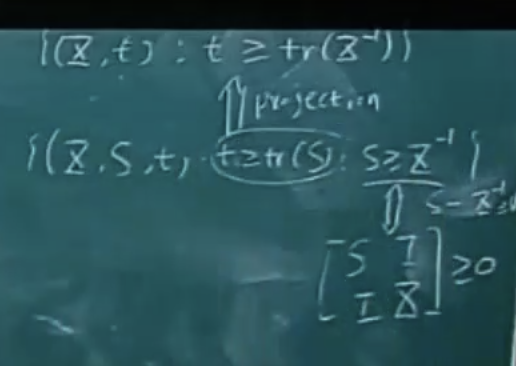 {(X, t) : t ≥ tr(X⁻¹)}
⇑ projection
{(X, S, t) : t ≥ tr(S) : S ≥ X⁻¹ }
⇕ S - X⁻¹ ≥
[ S I
I X ] ≥ 0